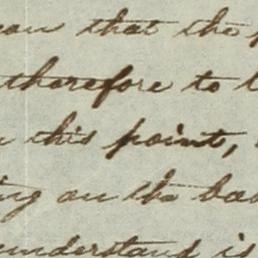 that the
therefore to
this point,
ing on the
understand is